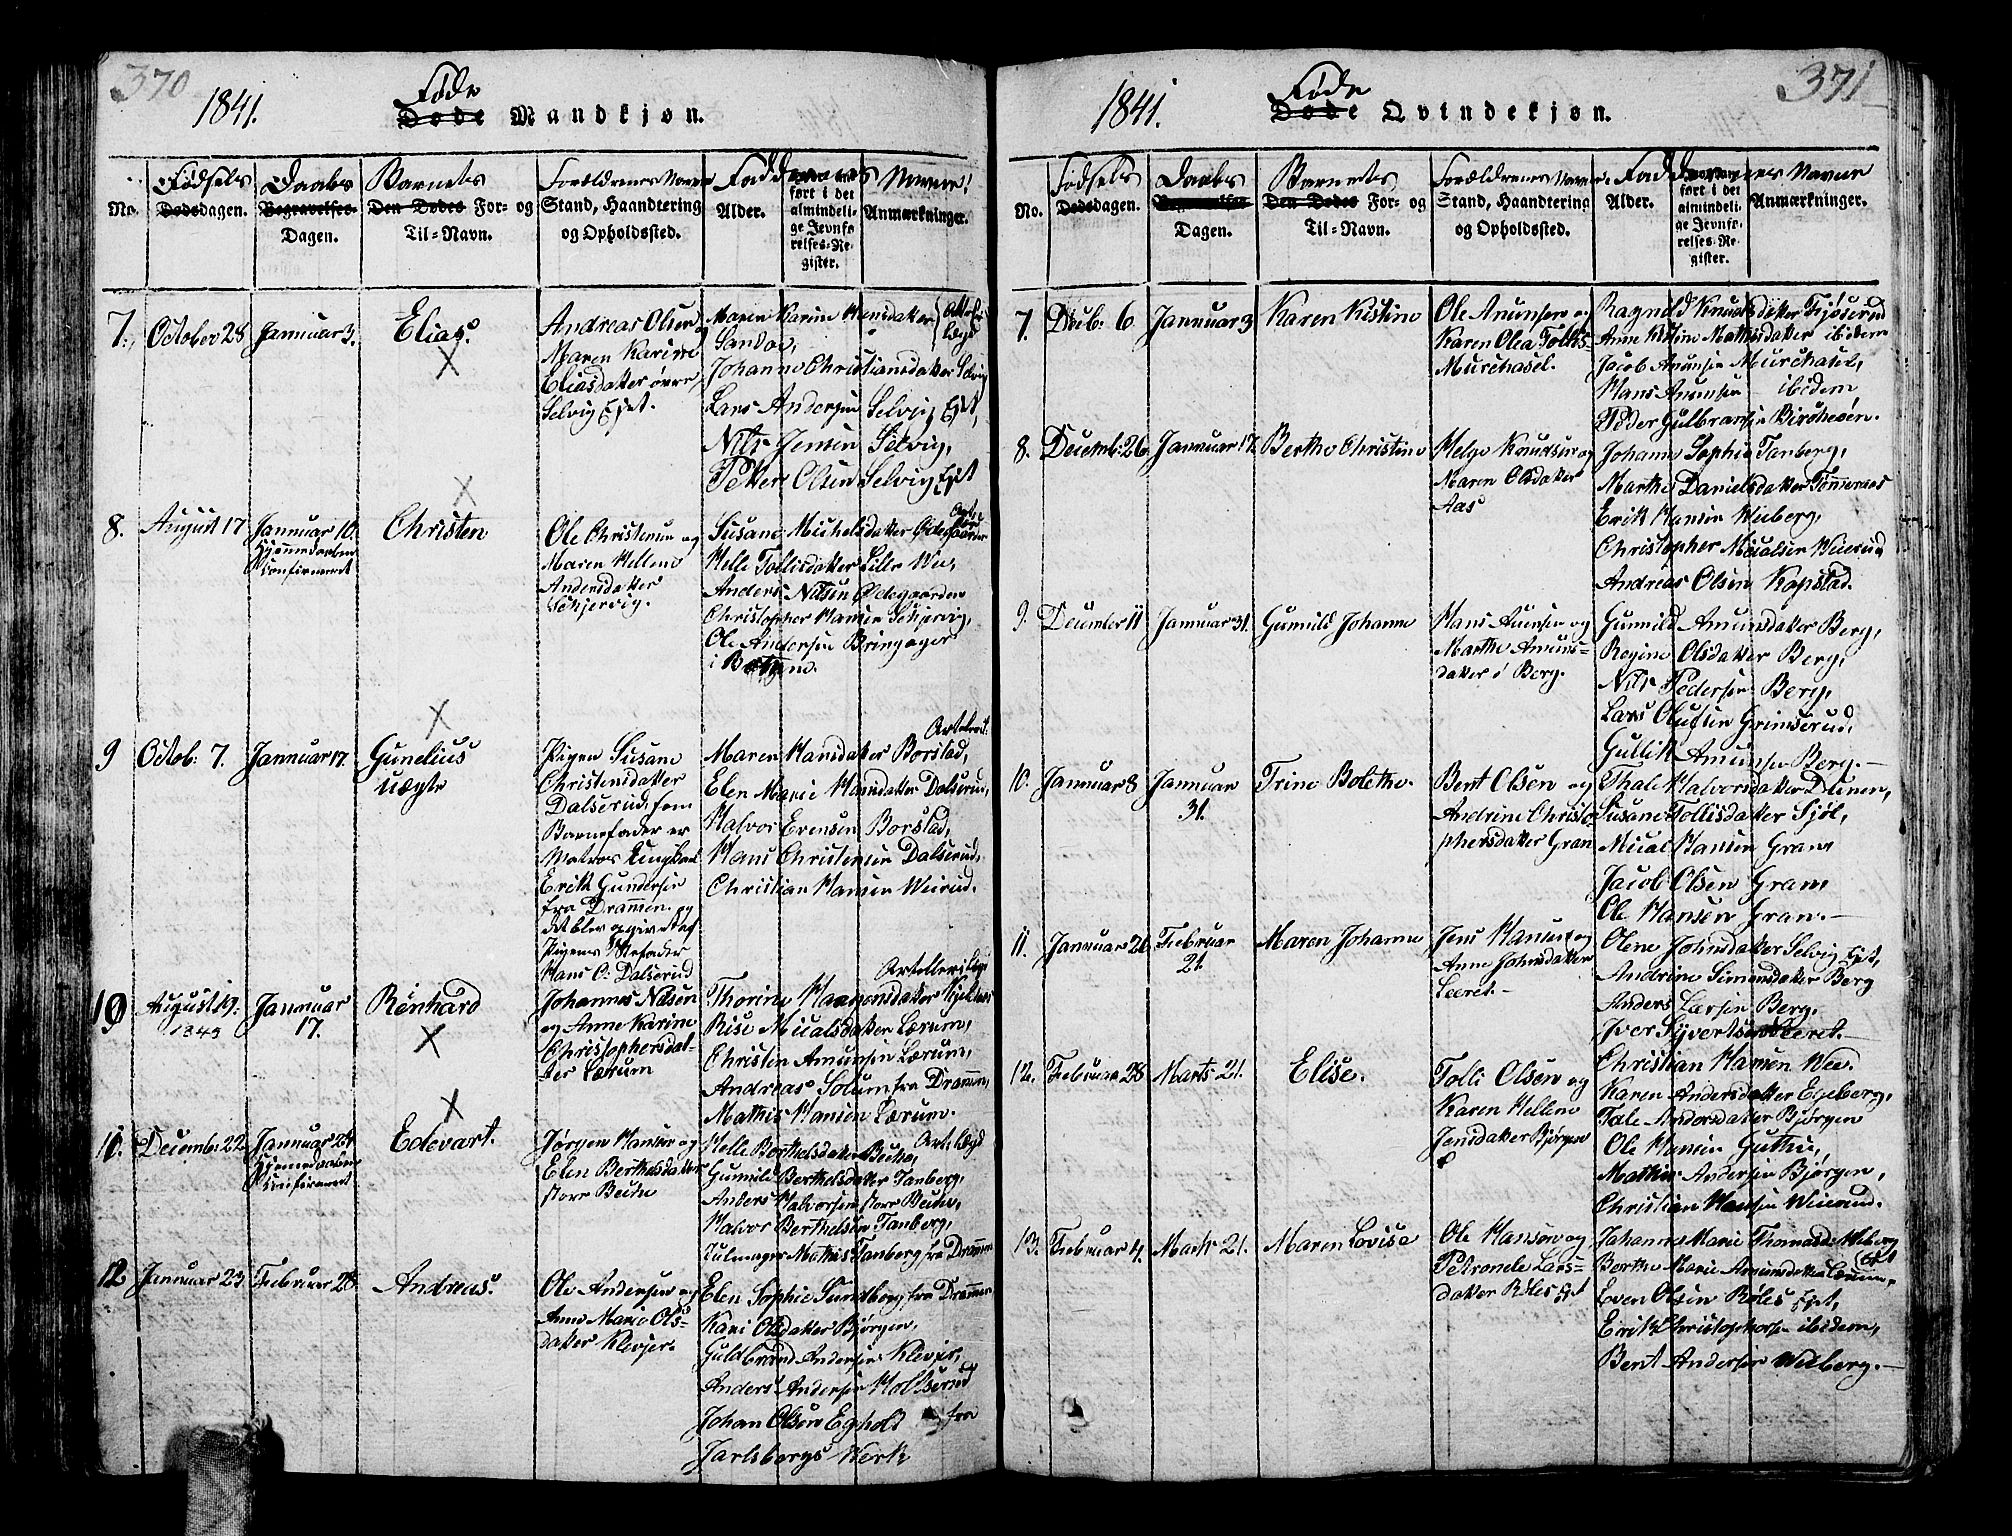 370
1841.
Føde
Døde Mandkjøn.
No.
Fødsels
Dødsdagen.
Daabs
Begravelses-
Dagen.
Barnets
Den Dødes For- og
Til-Navn.
Forældrenes Navne
Stand, Haandtering
og Opholdssted.
Faddernes Navne!
Alder.
ført i det
almindeli-
ge Jevnfø-
relses-Re-
gister.
Anmærkninger.
7.
October 28
Januar 3.
Elias.
Andreas Olsen
Maren Karine
Eliasdatter øvre
Selvig Eiet.
Maren Karine Hansdatter
Sandøe,
Johanne Christiansdatter Selvig
Lars Andersen Selvig Eiet,
Nils Jensen Selvig,
Peter Olsen Selvig Eiet
8.
August 17
Januar 10.
Hjemmedøbt
Confirmeret
Christen
Ole Christensen og
Maren Hellene
Andersdatter
Schjervig.
Susane Michelsdatter Ødegaarden
Helle Tollisdatter Lille Wee,
Anders Nilsen Ødegaarden
Christopher Hansen Schjervig,
Ole Andersen Bringager
i Botne.
9
Octob: 7.
Januar 17.
Gunelius
uægte
Pigen Susane
Christensdatter
Dalserud, som
Barnefader er
Matros Ungkarl
Erik Gundersen
fra Drammen. og
det blev opgivet af
Pigens Stifader
Hans C: Dalserud
Maren Hansdatter Borstad,
Elen Marie Hansdatter Dalserud,
Halvor Evensen Borstad,
Hans Christensen Dalserud,
Christian Hansen Weirud.
10
August 19.
1840
Januar
17.
Reinhard
Johannes Nilsen
og Anne Karine
Christophersdat-
ter Lærum
Artelleri Lægd
Rise Micalsdatter Lærum,
Christen Amunsen Lærum,
Andreas Solum fra Drammen,
Mathis Hansen Lærum.
11.
Decemb: 22
Januar 24
Hjemmedøbt
Confirmeret
Edevart.
Jørgen Hansen og
Elen Berthelsdatter
store Bectu
Art. Lægd
Helle Berthelsdatter
Gunnild Berthelsdatter Tanberg,
Anders Halvorsen store
Halvor Berthelsen Tanberg,
Mathis Tanberg fra Drammen
12
Januar 23
Februar 28
Andreas.
Ole Andersen og
Anne Marie Ols-
datter Klevjer.
Elen Sophie Sundberg fra Drammen
Kari Olsdatter Bjørgen,
Guldbrand Andersen Klevjer,
Anders Andersen Holtserud
Johan Olsen Egholt fra
Jarlsbergs Værk
371
1841.
Føde
Døde Qvindekjøn.
No.
Fødsels
Dødsdagen.
Daabs
Begravelses
Dagen.
Barnets
Den Dødes For- og
Til-Navn.
Forældrenes Navne.
Stand, Haandtering
og Opholdssted.
Faddernes Navne
Alder.
ført i det
almindeli-
ge Jevnfø-
relses-Re-
gister.
Anmærkninger.
7.
Decb: 6
Januar 3
Karen Kistine
Ole Anunsen og
Karen Olea Tolfs-
Murchasel.
Ragnild Knudsdatter Fjøserud
Anne Kistine Mathisdatter ibidem
Jacob Anunsen Murchasel,
Hans Anunsen ibidem
Peder Gulbransen
8.
Decemb: 26
Januar 17.
Berthe Christine
Helge Knudsen og
Maren Olsdatter
Aas
Johanne Sophie Tanberg,
Marthe Danielsdatter Tømmeraas
Erik Hansen Weeberg,
Christopher Micalsen Weierud
Andreas Olsen Kopstad.
9.
December 11
Januar 31.
Gunnild Johanne
Hans Anensen og
Marthe Amuns-
datter i Berg.
Gunnild Amunsdatter Berg,
Regine Olsdatter Berg,
Nils Pedersen Berg,
Lars Olufsen Grimserud,
Gullik Amunsen Berg.—
10.
Januar 8
Januar
31.
Trine Bolethe.
Bent Olsen og
Andrine Christo-
phersdatter Gran
Thale Halvorsdatter Dunen,
Susane Tollisdatter Sjøl,
Mical Hansen Gran
Jacob Olsen Gran,
Ole Hansen Gran.—
11.
Januar 20
Februar
21.
Maren Johanne
Jens Hansen og
Anne Johnsdatter
Leeret.—
Olene Johnsdatter Selvig Eiet,
Andrine Simensdatter Berg
Anders Larsen Berg,
Iver Syvertsen Leeret.—
Christian Hansen Wee.
12.
Februar 28
Marts 21.
Elise.
Tolli Olsen og
Karen Hellene
Jensdatter Bjørgen
Karen Andersdatter Egeberg,
Tale Andersdatter Bjørgen
Ole Hansen Guthu,
Mathis Andersen Bjørgen,
Christian Hansen Weierud.
13.
Februar 4.
Marts 21.
Maren Lovise
Ole Hansen og
Petronele Lars-
datter Røles Eiet
Johanne Marie Thomasd: Weberg
Eiet
Berthe Marie Amunsdatter Lærum,
Even Olsen Røles Eiet,
Erik Christophersen ibidem,
Bent Andersen Weeberg.—